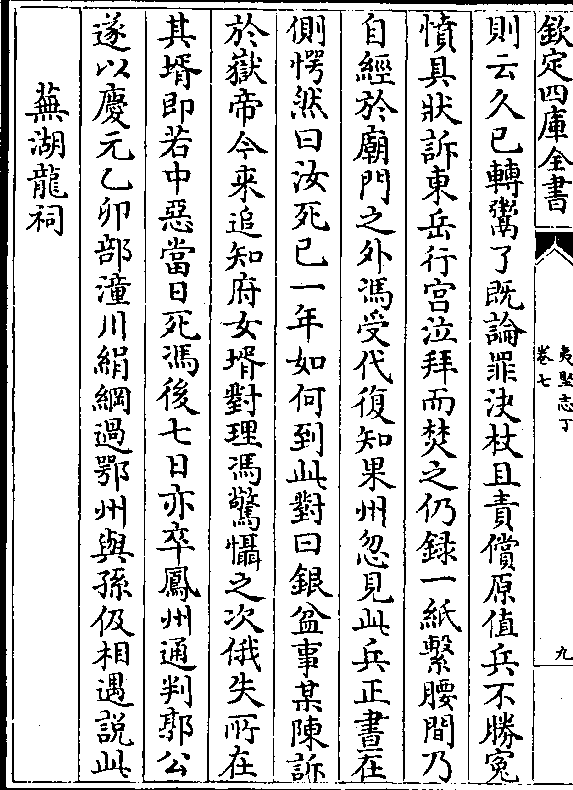 欽定四庫全書
夷堅志丁
卷七
九
則云久已轉鬻了既論罪決杖且責償原值兵不勝寃
憤具狀訴東岳行宮泣拜而焚之仍錄一紙繫腰間乃
自經於廟門之外馮受代復知果州忽見此兵正晝在
側愕然曰汝死已一年如何到此對曰銀盆事某陳訴
於嶽帝今來追知府女壻對理馮驚懾之次俄失所在
其壻即若中惡當日死馮後七日亦卒鳳州通判郭公
遂以慶元乙卯部潼川絹綱過鄂州與孫伋相遇說此
蕪湖龍祠